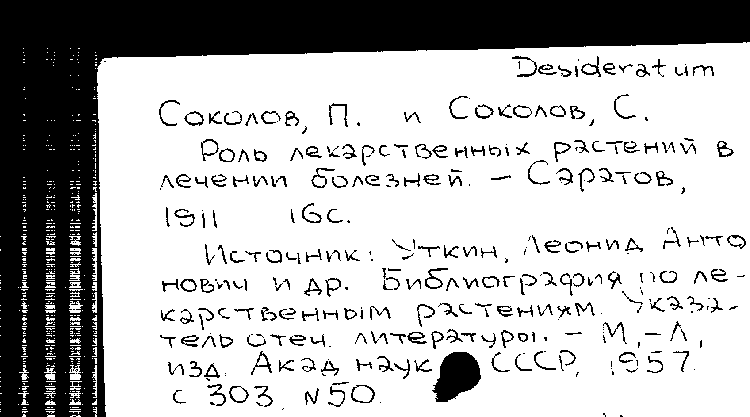 Desideratum
Соколов, П. и Соколов, С.
Роль лекарственных растений в
лечении болезней. – Саратов,
1911 16с.
Источник: Уткин, Леонид Анто
нович и др. Библиография по ле-
карственным растениям. Указа-
тель отеч. литературы. – М.-Л.,
изд. Акад наук СССР, 1957.
с 303, N50.